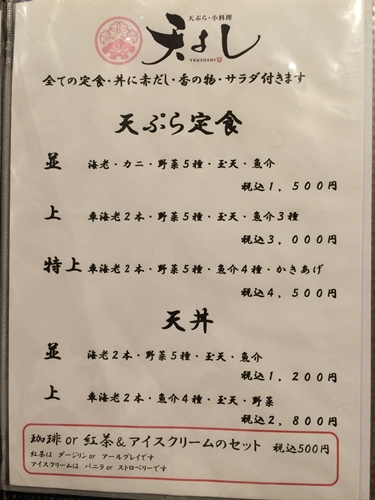 天ぷら・小料理
天よし
TENYOSHI
全ての定食・丼に赤だし・香の物・サラダ付きます
天ぷら定食
並 海老・カニ・野菜5種・玉天・魚介
税込1,500円
上 車海老2本・野菜5種・玉天・魚介3種
税込3,000円
特上 車海老2本・野菜5種・魚介4種・かきあげ
税込4,500円
天丼
並 海老2本・野菜5種・玉天・魚介
税込1,200円
上 車海老2本・魚介4種・玉天・野菜
税込2,800円
珈琲 or 紅茶&アイスクリームのセット 税込500円
紅茶は ダージリン or アールグレイです
アイスクリームは バニラ or ストロベリーです